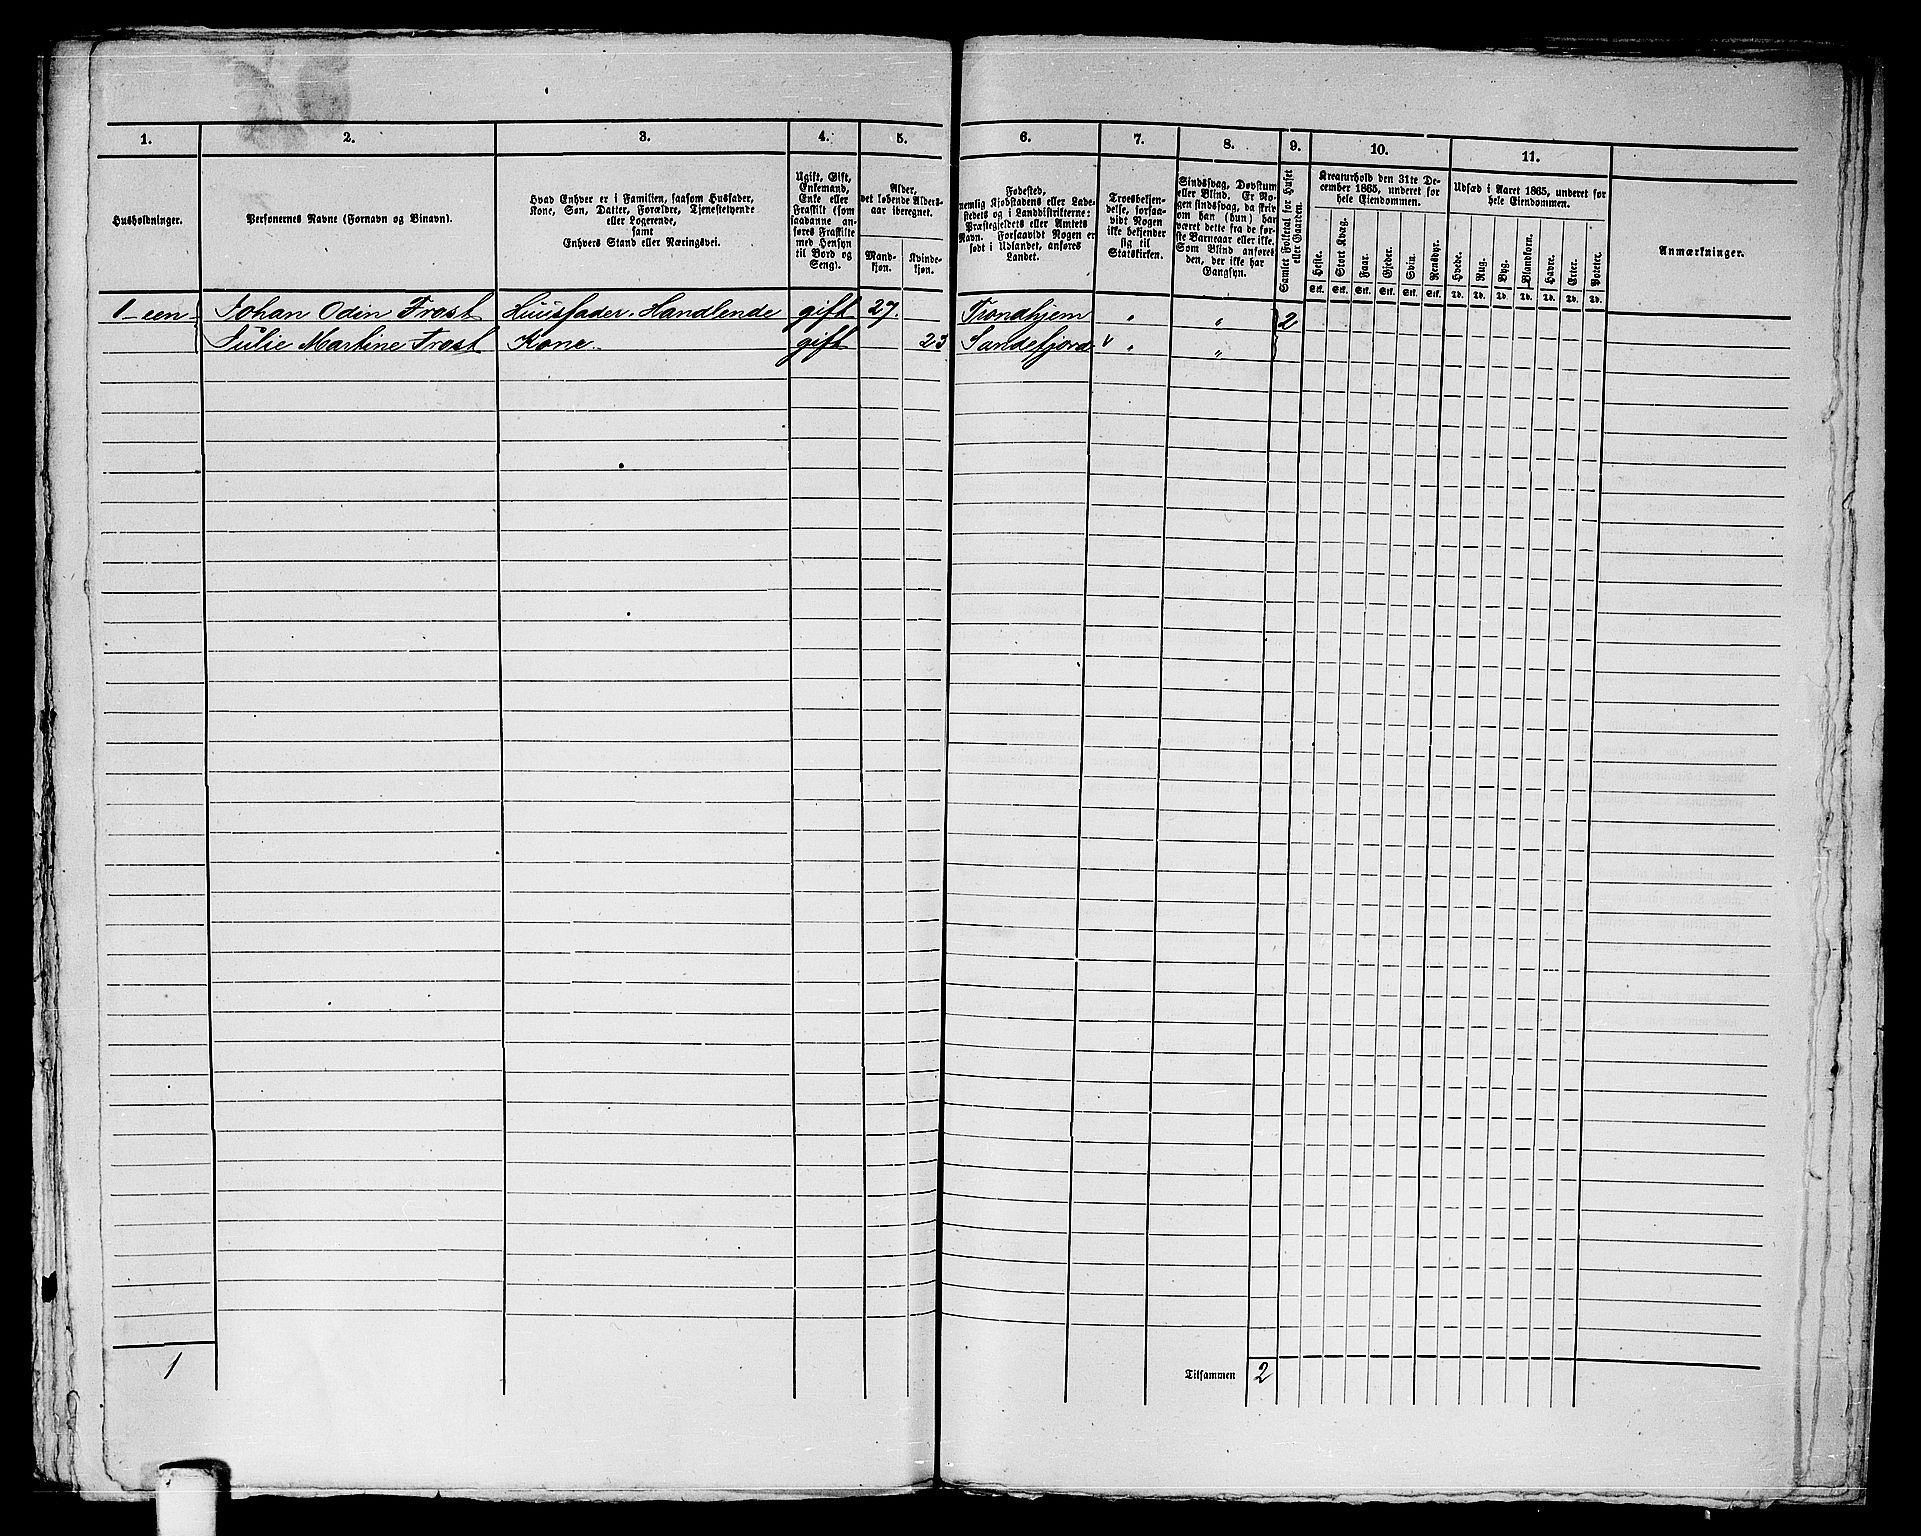 1. 2. 3. 4. 5. 6. 7. 8. 9. 10. 11.
Husholdninger.
Personernes Navne (Fornavn og Binavn).
Hvad Enhver er i Familien, saasom Husfader,
Kone, Søn, Datter, Forældre, Tjenestetyende
eller Logerende,
samt
Enhvers Stand eller Næringsvei.
Ugift, Gift,
Enkemand,
Enke eller
Fraskilt (som
saadanne an-
føres Fraskilte
med Hensyn
til Bord og
Seng).
Alder,
det løbende Alders-
aar iberegnet.
Mand-
kjøn.
Kvinde-
kjøn.
Fødested,
nemlig Kjøbstadens eller Lade-
stedets og i Landdistrikterne:
Præstegjeldets eller Amtets
Navn. Forsaavidt Nogen er
født i Udlandet, anføres
Landet.
Troesbekjen-
delse, forsaa-
vidt Nogen
ikke bekjender
sig til
Statskirken.
Sindssvag, Døvstum
eller Blind. Er No-
gen sindssvag, da skriv
om han (hun) har
været dette fra de før-
ste Barneaar eller ikke.
Som Blind anføres
den, der ikke har
Gangsyn.
Samlet Folketal for Huset
eller Gaarden.
Kreaturhold den 31te De-
cember 1865, underet for
hele Eiendommen.
Heste. Stort Kvæg. Faar. Gjeder. Svin. Rensdyr.
Stk. Stk. Stk. Stk. Stk. Stk.
Udsæd i Aaret 1865, underet for
hele Eiendommen.
Hvede. Rug. Byg. Blandkorn. Havre. Erter. Poteter.
Td. Td. Td. Td. Td. Td. Td.
Anmærkninger.
1 – een – Johan Odin Frost Huusfader. Handlende gift 27. Trondhjem " " 2
Julie Martine Frost Kone. gift 23 Sandefjord " "
1 Tilsammen 2